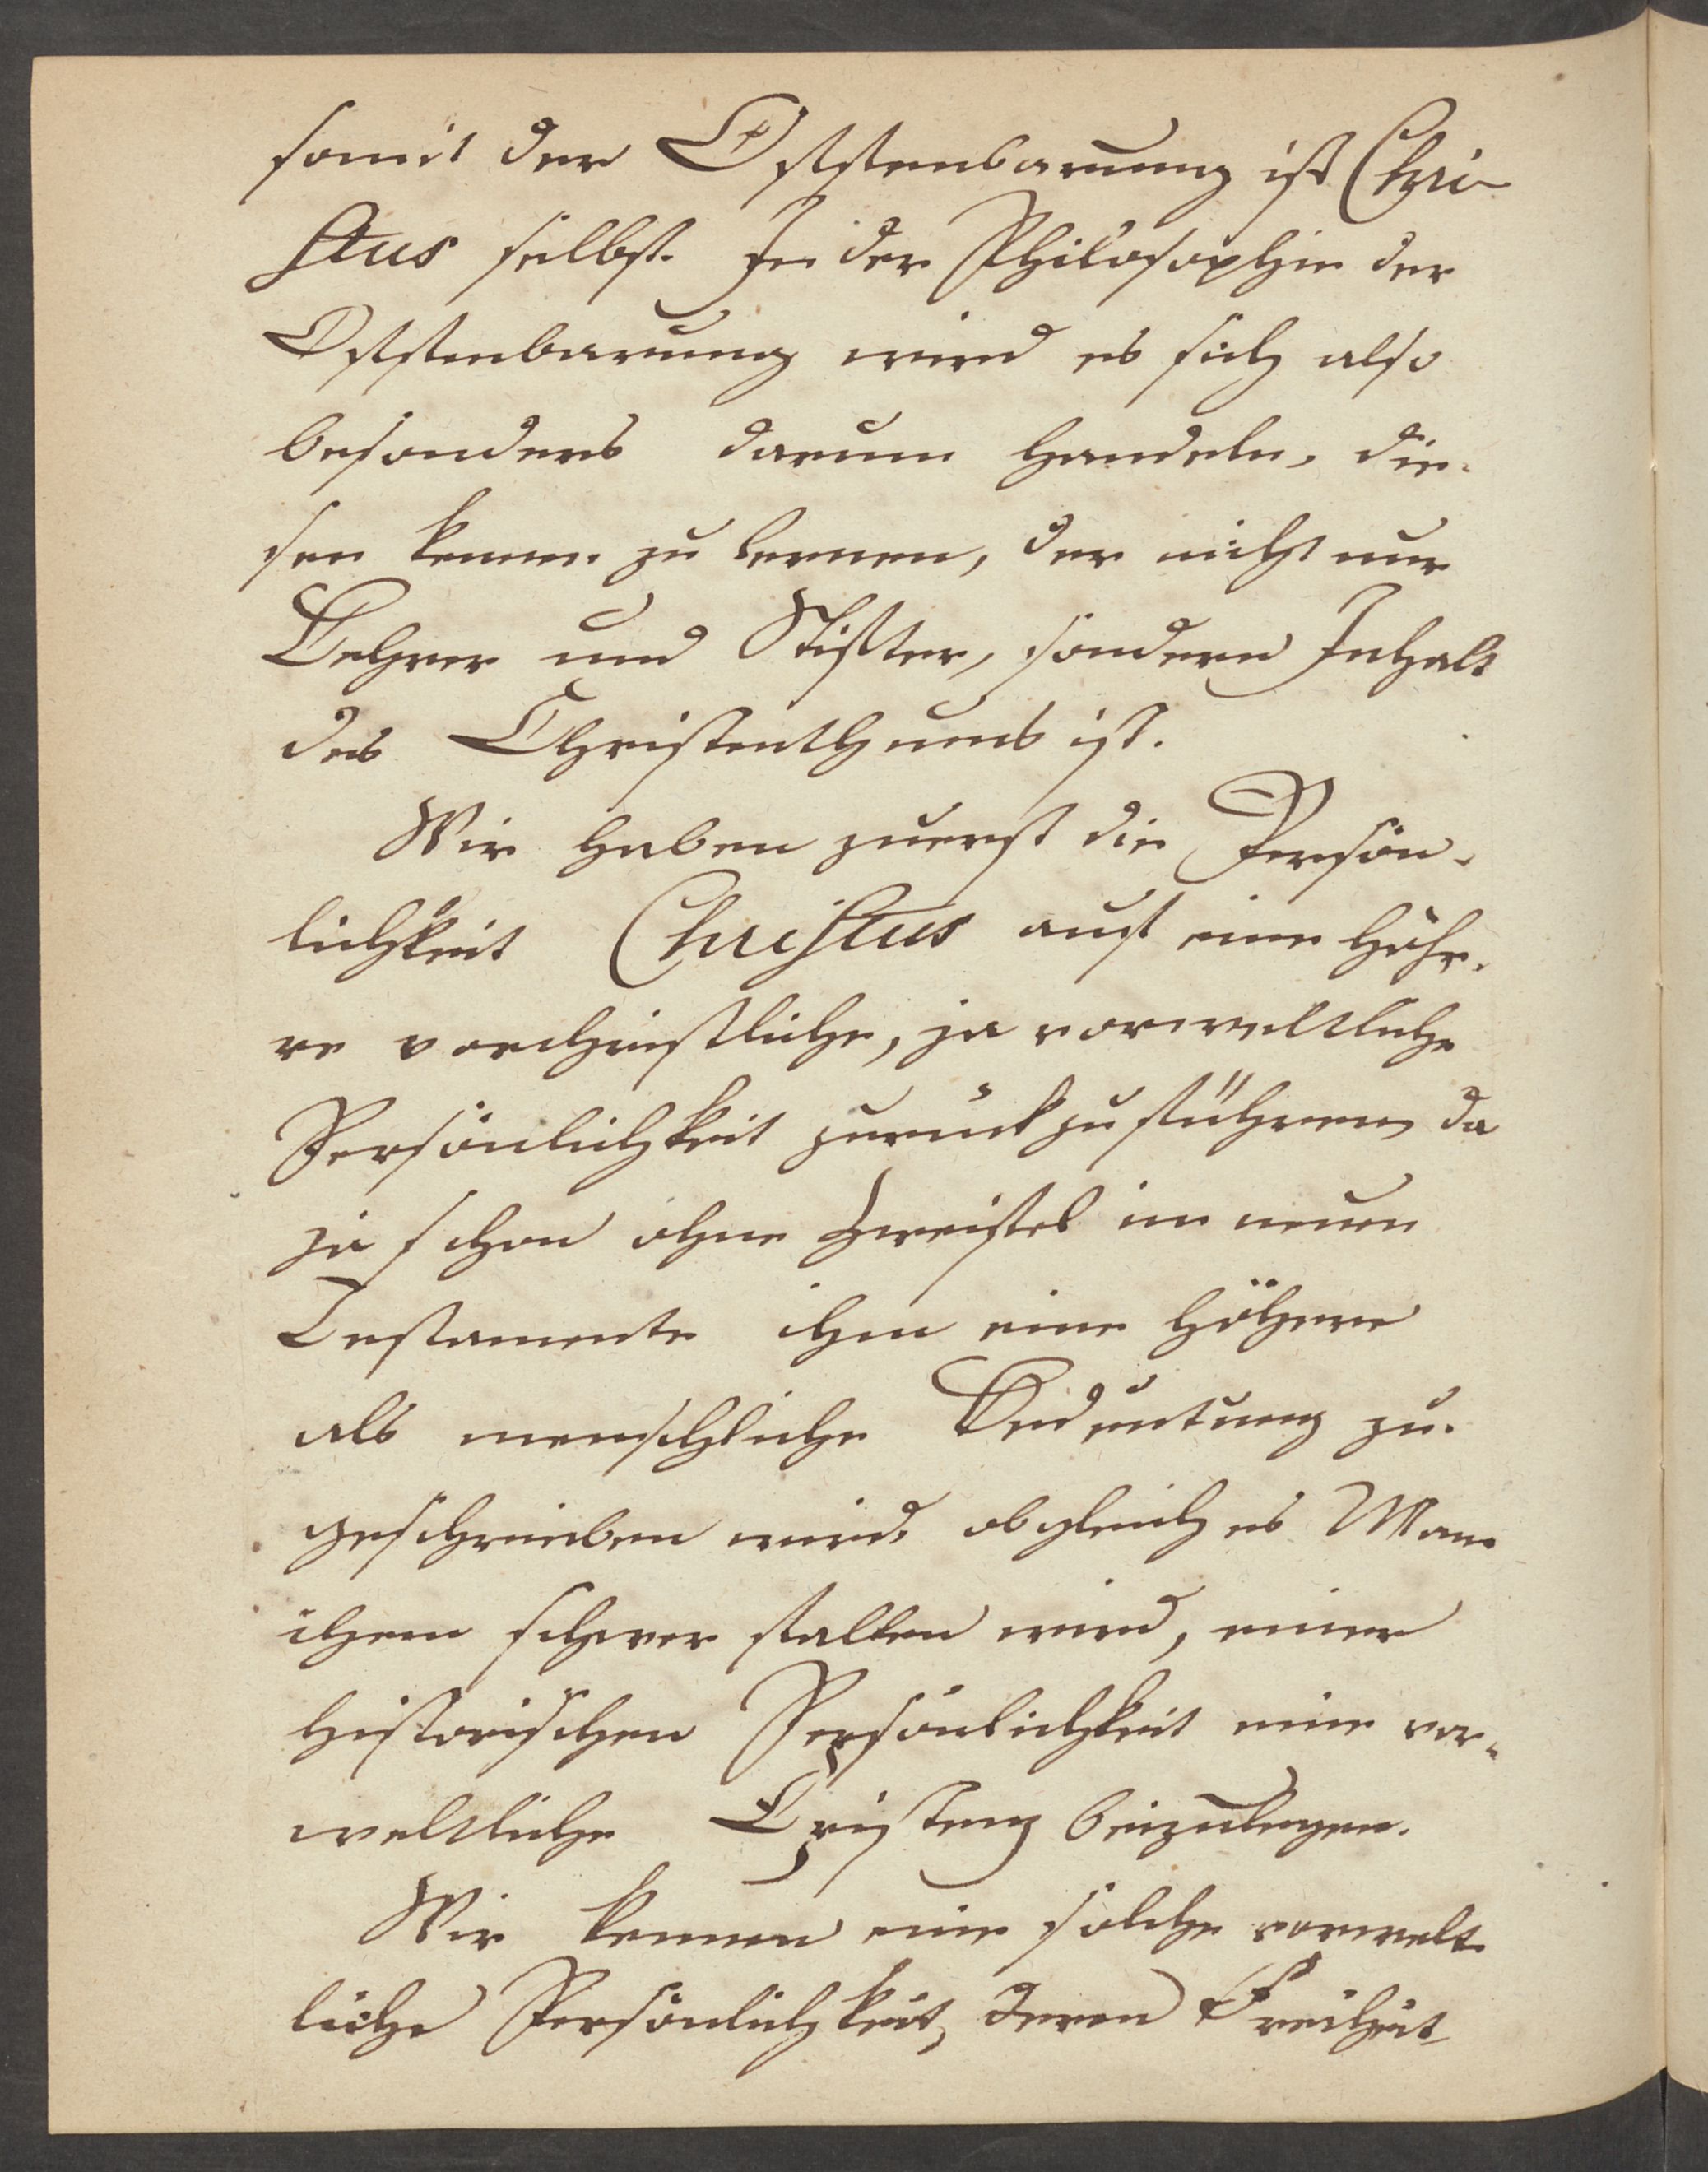 somit der Offenbarung ist Chri-
stus selbst. In der Philosophie der
Offenbarung wird es sich also
besonders darum handeln, die-
sen kennen zu lernen, der nicht nur
Lehrer und Stifter, sondern Inhalt
des Christenthums ist.
Wir haben zuerst die Persön-
lichkeit Christus auf eine höhe-
re vorchristliche, ja vorweltliche
Persönlichkeit zurückzuführen, da
ja schon ohne Zweifel im neuen
Testamente ihm eine höhere
als menschliche Bedeutung zu-
geschrieben wird, obgleich es Man-
chem schwer fallen wird, einer
historischen Persönlichkeit eine vor-
weltliche Existenz beizulegen.
Wir kennen eine solche vorwelt-
liche Persönlichkeit, deren Freiheit